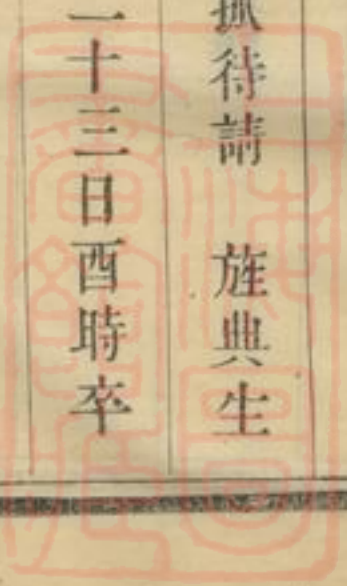 孤待請　旌典生
一十三日酉時卒